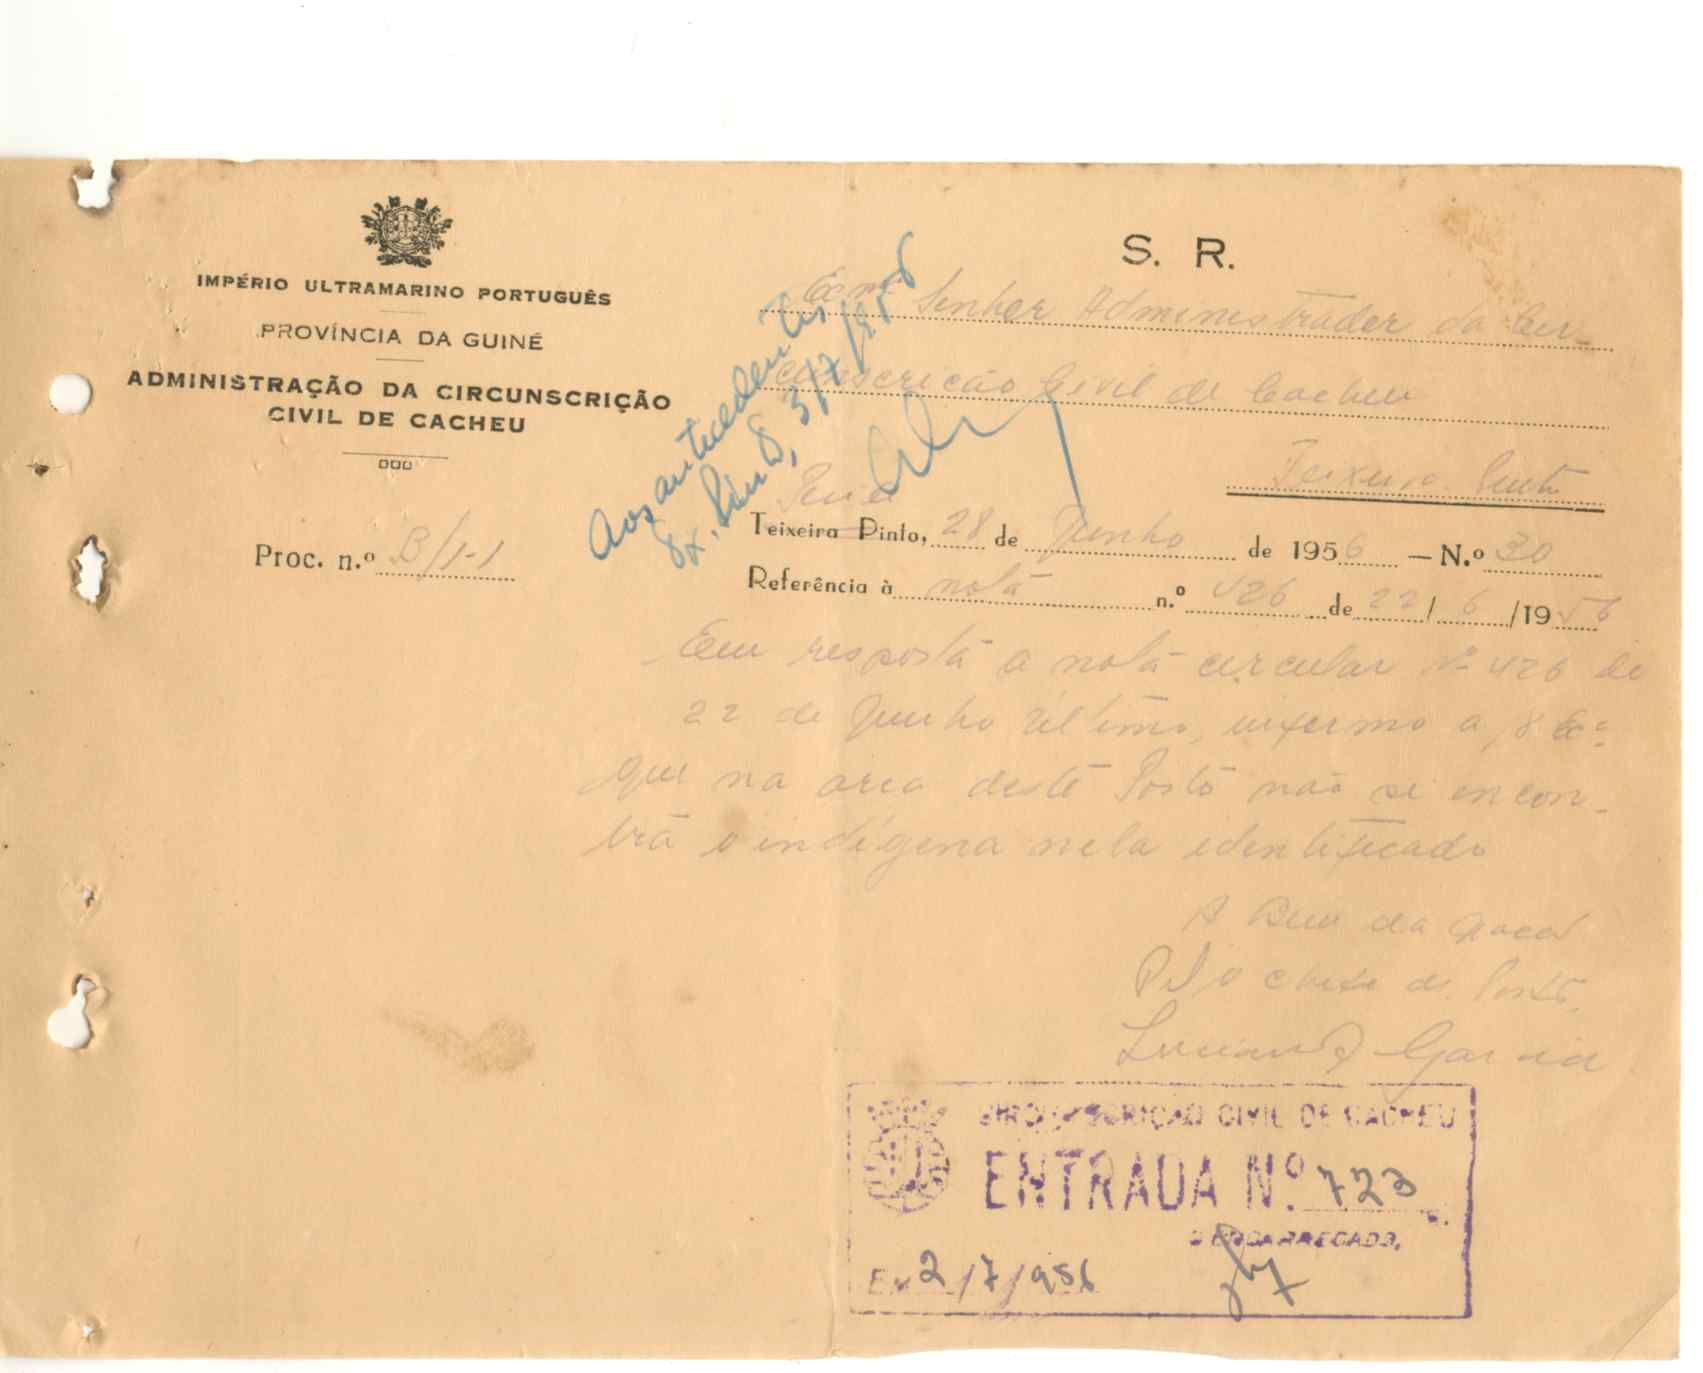 IMPÉRIO ULTRAMARINO PORTUGUÊS
PROVÍNCIA DA GUINÉ
ADMINISTRAÇÃO DA CIRCUNSCRIÇÃO
CIVIL DE CACHEU
Proc. n.º B/1-1
Aos antecedentes
3/7/1956
S. R.
Exmº Senhor Administrador da Cir-
cunscrição Civil de Cacheu
Teixeira Pinto
Teixeira Pinto, 28 de Junho de 1956 — N.º 30
Referência à nota n.º 426 de 22/6/1956
Em resposta a nota circular Nº 426 de
22 de Junho último, informo a V. Exª
que na area deste Posto não se encon-
tra o indígena nela identificado
A Bem da Nação
Pelo chefe de Posto,
Luciano Garcia
CIRCUNSCRIÇÃO CIVIL DE CACHEU
ENTRADA Nº. 723
O ENCARREGADO,
Em 2/7/956